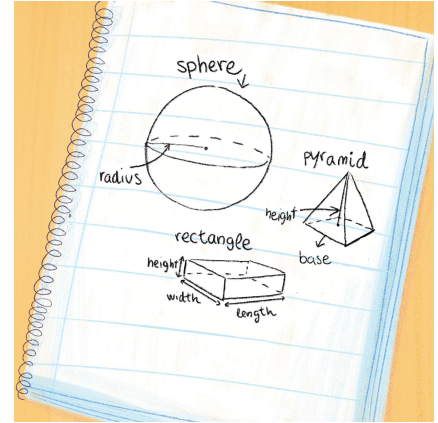 sphere
radius
pyramid
height
base
rectangle
height
width
length